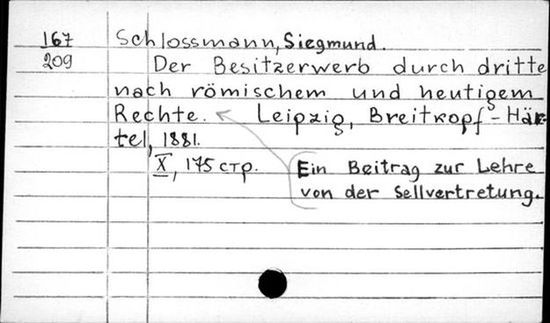 167 Schlossmann, Siegmund.
209 Der Besitzerwerb durch dritte
nach römischem und heutigem
Rechte. Leipzig, Breitkopf - Här
tel, 1881.
X, 175 стр. Ein Beitrag zur Lehre
von der Sellvertretung.